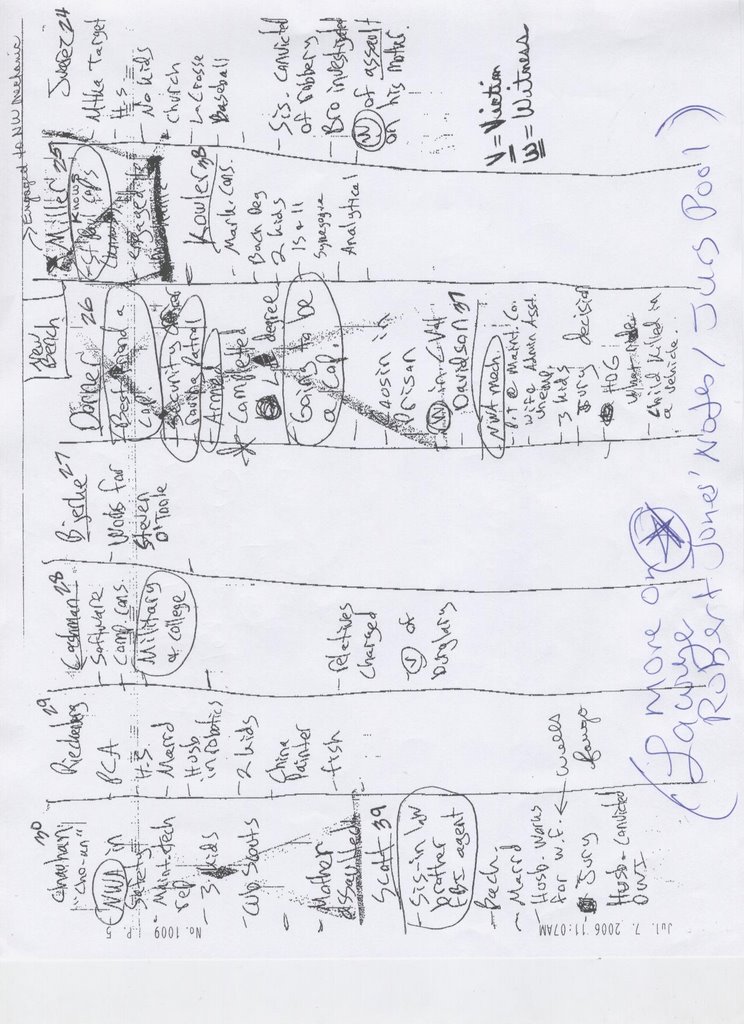 →Engaged to NW mechanic
New
Bench
Chauhan 30
"Cho-un"
- NWA in
Safety
Maint. tech
rep
- 3 kids
- Cub Scouts
- Mother
assaulted
Scott 39
- Sis-in law
brother
FBI agent
- Bach.
- Marrd
- Husb. works
for W.F. ← Wells
Fargo
- Jury
Husb - Convicted
DWI
29
- PCA
- H.S.
- Marrd
- Husb
in robotics
- 2 kids
- China
Painter
- fish
Cashman 28
- Software
Comp. cons.
- Military
& college
- relatives
charged
- (V) of
burglary
Bjerke 27
- Works for
Steven
O'Toole
Donner 26
- Best friend a
cop
- Security
- Armed
- Completed
LE degree
- Going to be
a cop
- Cousin in
Prison
Davidson 37
- NWA mech.
- Wife Admin Asst.
- 3 kids
- Jury decision
- HOG
- Child killed in
a vehicle.
Miller 25
Knows
St Paul cops
- engaged to
Kowler 38
- Mark. Cons.
- Bach Deg
- 2 kids
15 & 11
- Synagogue
- Analytical
Juarez 24
- Mtka Target
- H.S.
- No kids
- Church
- LaCrosse
- Baseball
- Sis. convicted
of robbery
- Bro investigated
- (W) of assault
on his mother
V = Victim
W = Witness
(1 more on ☆
Lawyer
Robert Jones' Notes/Jury Pool)
Jul. 7. 2006 11:07AM
No. 1009
P. 5